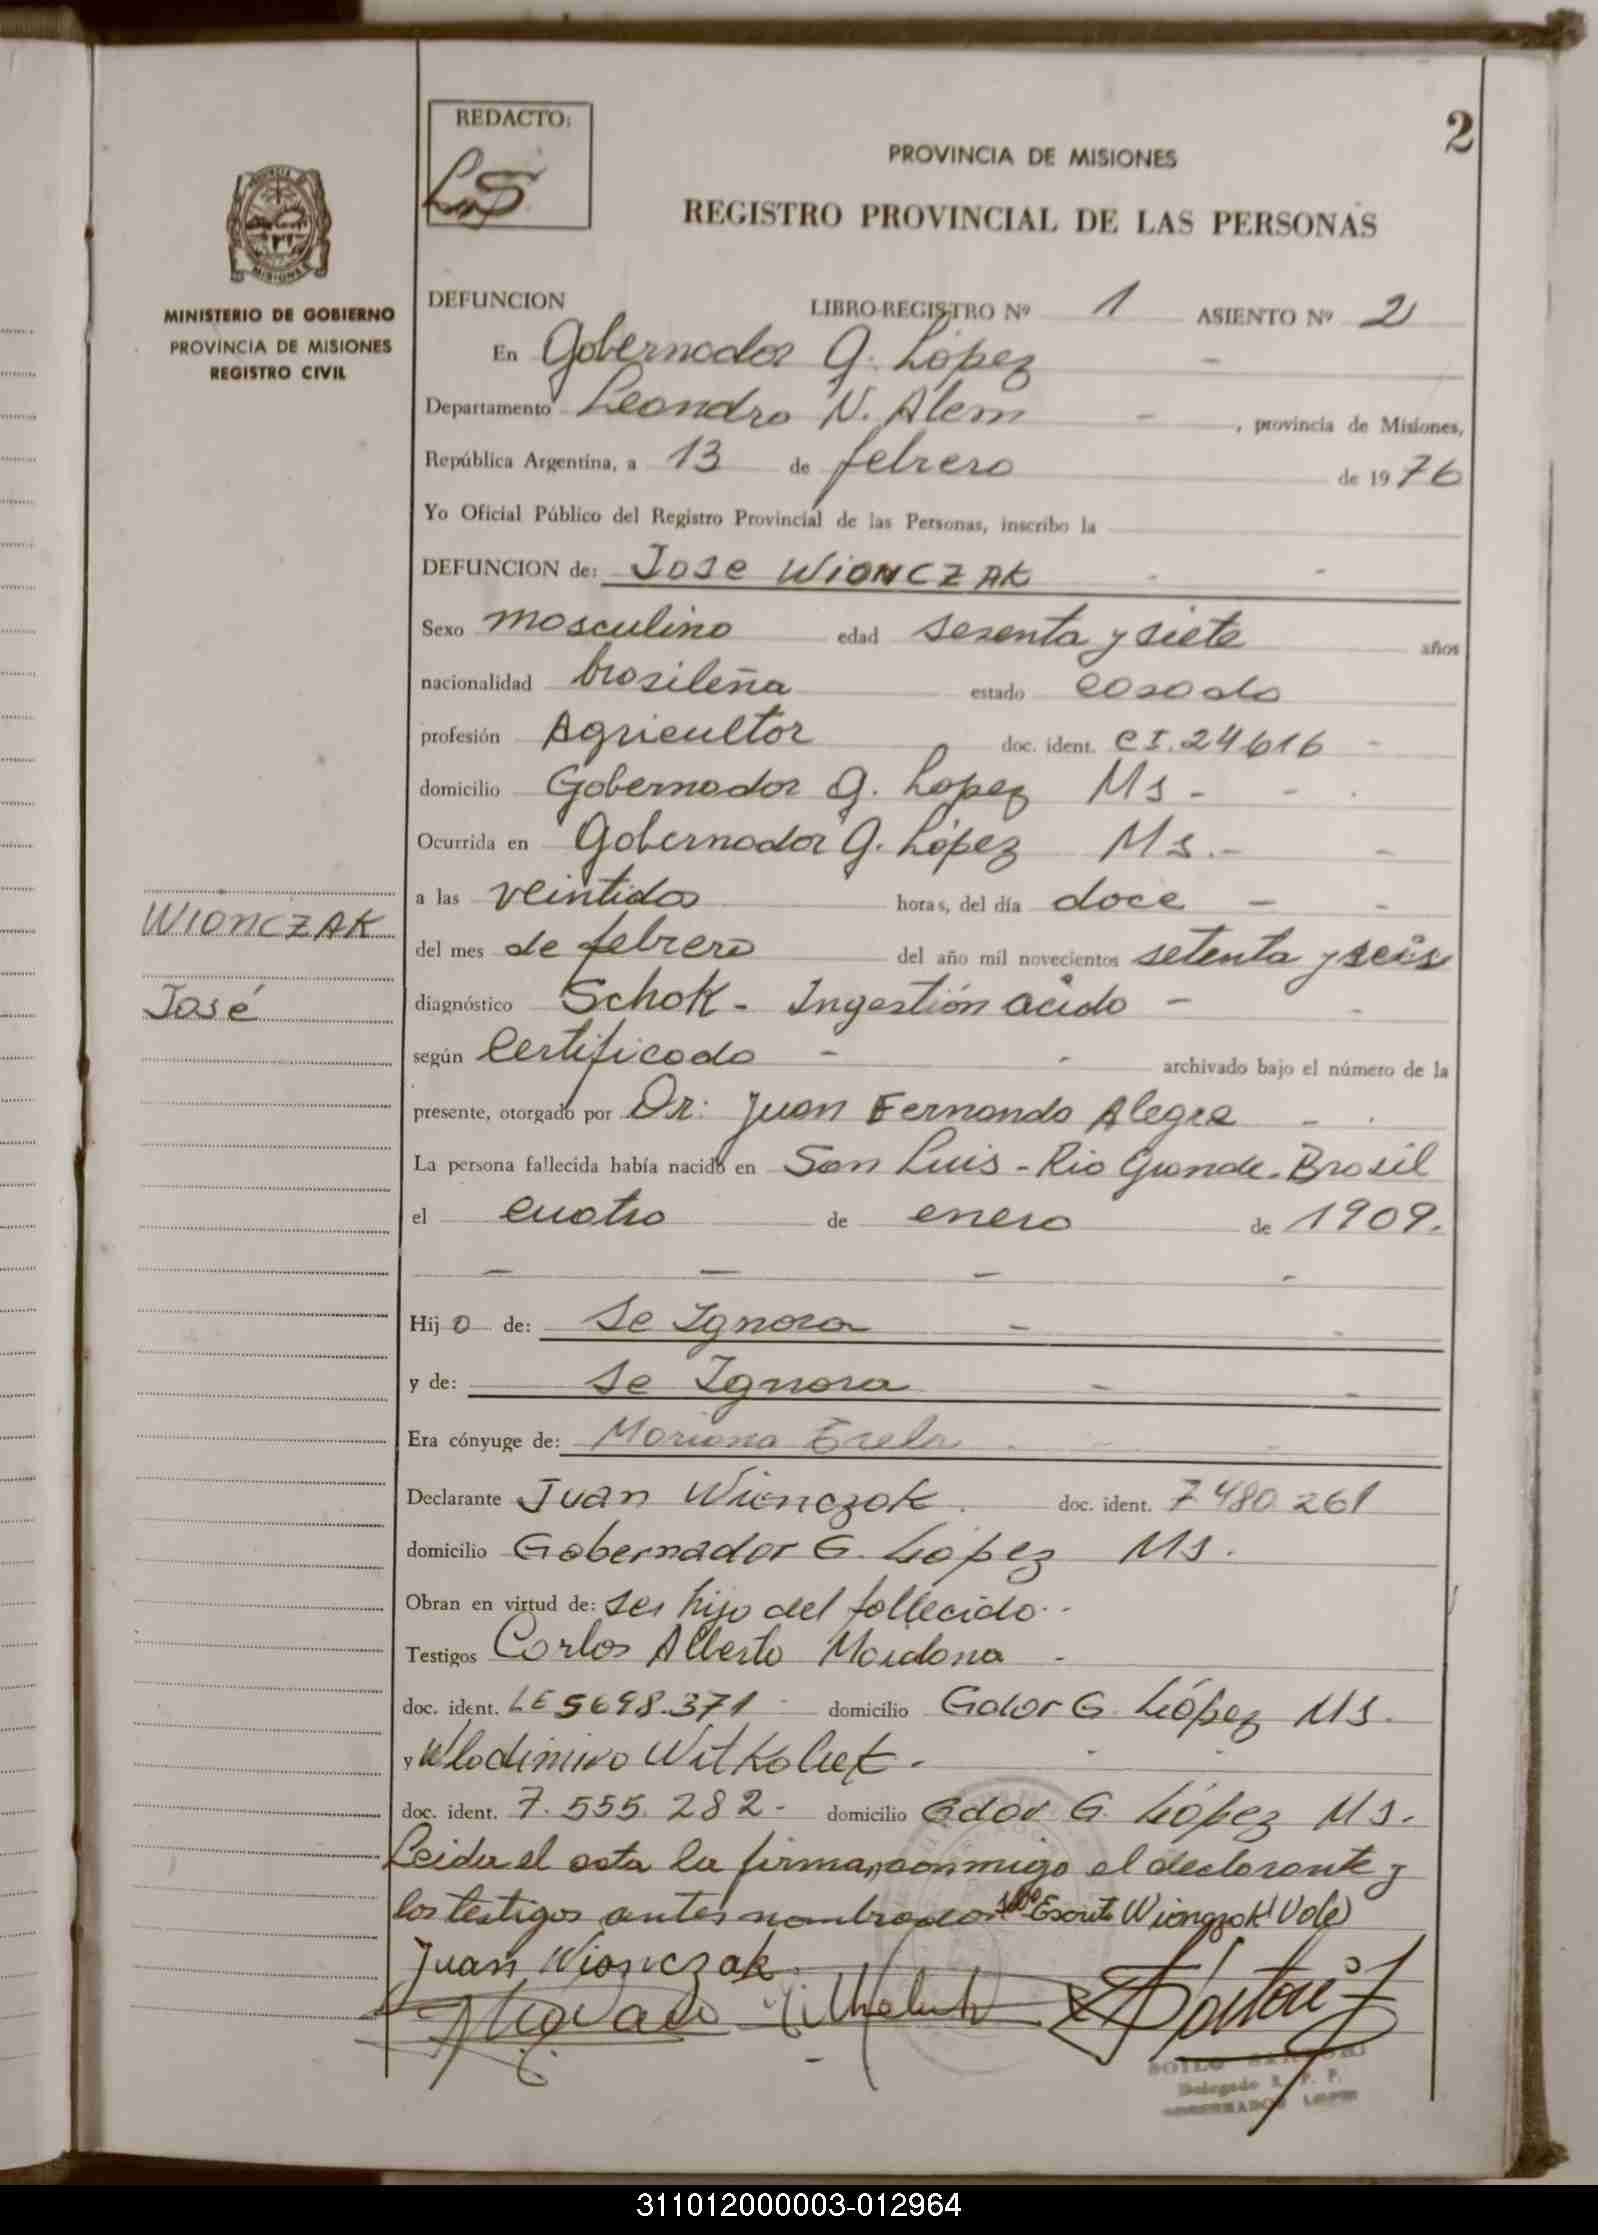 REDACTO:
2
PROVINCIA DE MISIONES
REGISTRO PROVINCIAL DE LAS PERSONAS
MISIONES
MINISTERIO DE GOBIERNO
PROVINCIA DE MISIONES
REGISTRO CIVIL
DEFUNCION LIBRO-REGISTRO Nº 1 ASIENTO Nº 2
En Gobernador G. López -
Departamento Leandro N. Alem - , provincia de Misiones,
República Argentina, a 13 de febrero de 1976
Yo Oficial Público del Registro Provincial de las Personas, inscribo la
DEFUNCION de: Jose WIONCZAK - -
Sexo masculino edad sesenta y siete años
nacionalidad brasileña estado casado
profesión Agricultor doc. ident. CI. 24616 -
domicilio Gobernador G. Lopez Ms - - .
Ocurrida en Gobernador G. López Ms.- -
a las veintidos horas, del día doce - -
WIONCZAK
del mes de febrero del año mil novecientos setenta y seis
José
diagnóstico Schok - Ingestión acido - -
según Certificado - - archivado bajo el número de la
presente, otorgado por Dr: Juan Fernando Alegre - .
La persona fallecida había nacido en San Luis - Rio Grande - Brasil
el cuatro de enero de 1909.
- - - -
Hijo de: Se Ignora - -
y de: Se Ignora - -
Era cónyuge de: Mariana - -
Declarante Juan Wionczak. doc. ident. 7480261
domicilio Gobernador G. López Ms.
Obran en virtud de: ser hijo del fallecido.-
Testigos Carlos Alberto -
doc. ident. LE 5698.371 - domicilio Gdor G. López Ms.
y Wlodimiro
doc. ident. 7.555.282- domicilio Gdor G. López Ms.
Leida el acta la firman, conmigo el declarante y
los testigos antes nombrados Escrito Wionczok Vale)
Juan Wionczak
Delegado R. P. P.
311012000003-012964